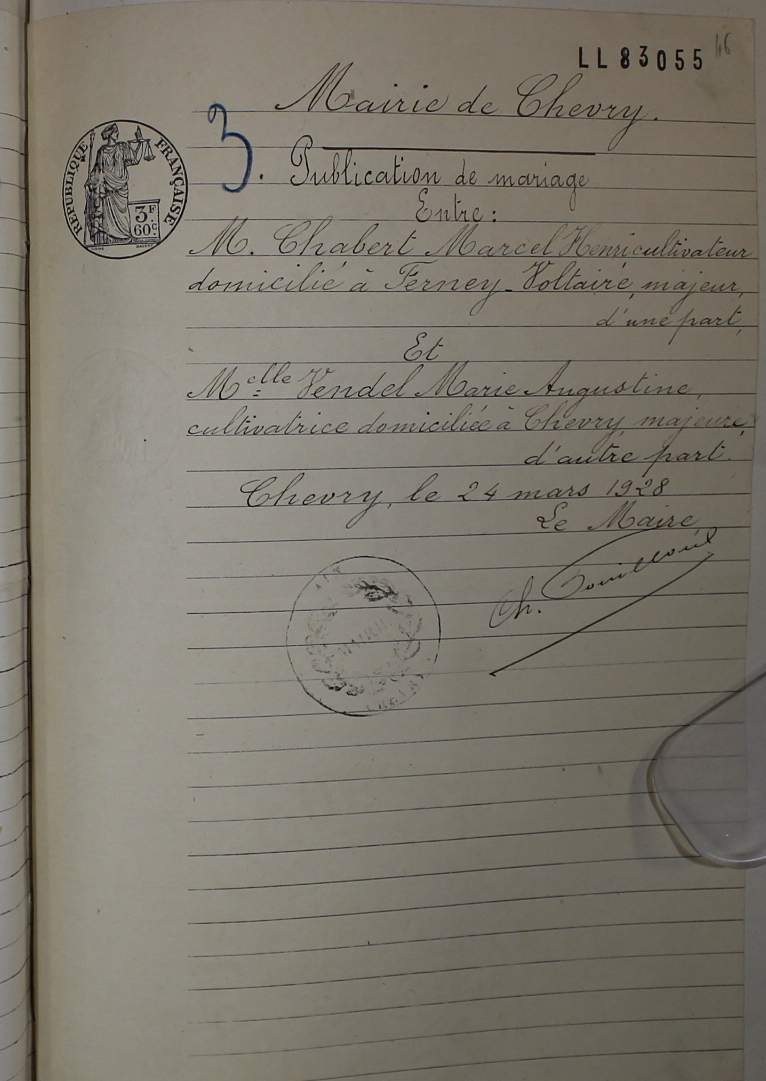 LL 83055
46
Mairie de Chevry.
3.
RÉPUBLIQUE FRANÇAISE
3F
60c
Publication de mariage
Entre:
M. Chabert Marcel Henri cultivateur
domicilié à Ferney-Voltaire, majeur,
d'une part,
Et
Melle Vendel Marie Augustine,
cultivatrice domiciliée à Chevry majeure,
d'autre part.
Chevry, le 24 mars 1928
Le Maire
Ch.
MAIRIE